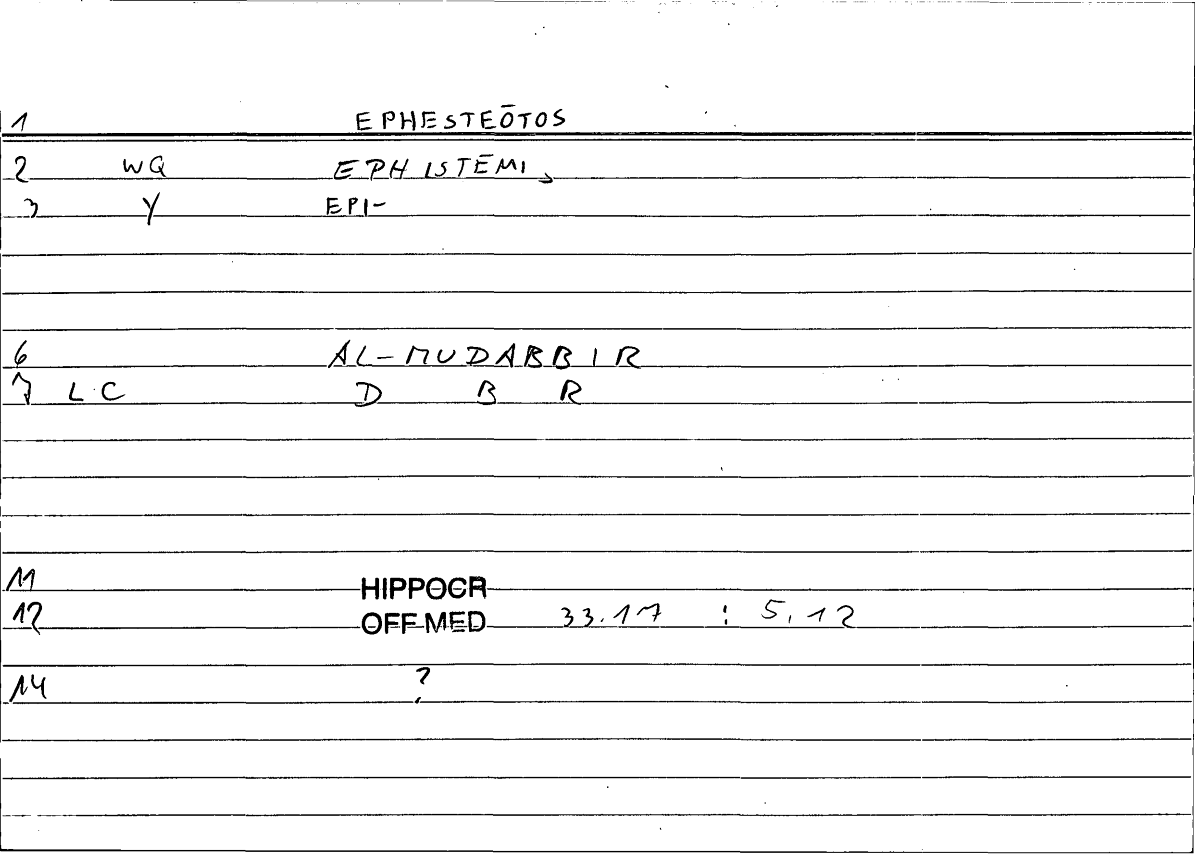 1 EPHESTEŌTOS
2 WQ EPHISTĒMI,
3 Y EPI-
6 AL-MUDABBIR
7 LC D B R
11 HIPPOCR
12 OFF MED 33.17 : 5,12
14 ?